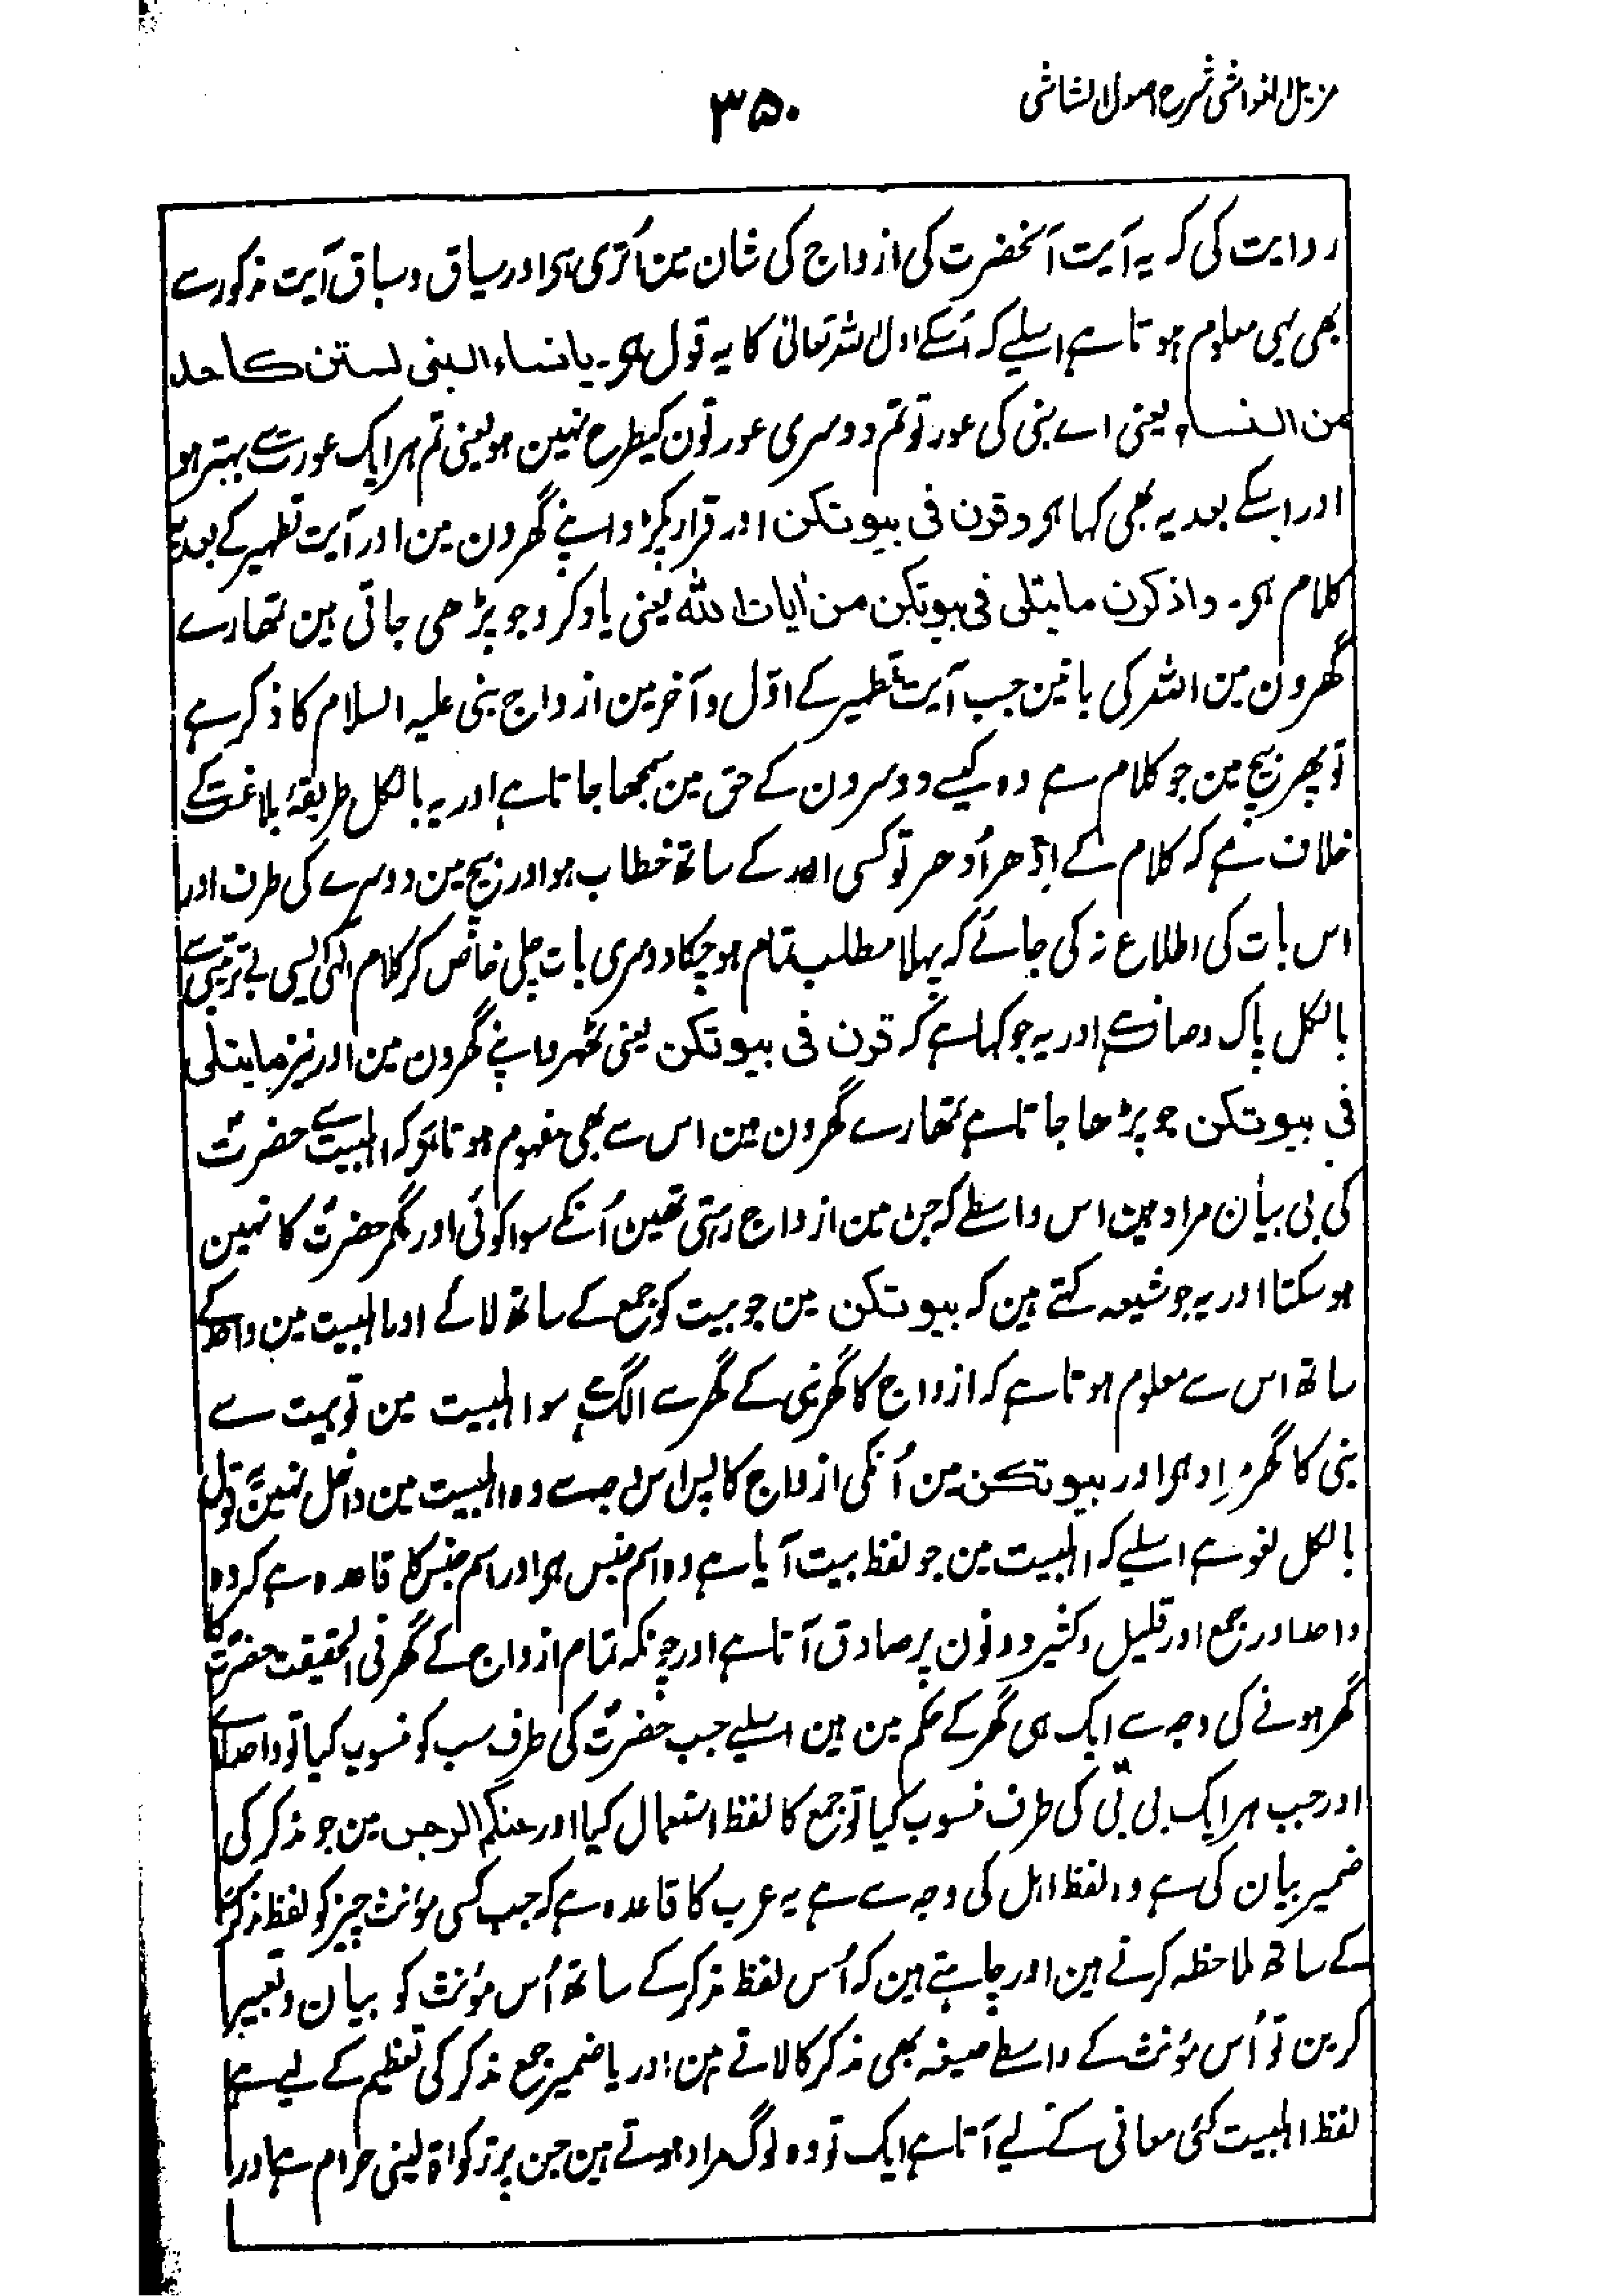 مزیل الغواشی شرح اصول الشاشی
۳۵۰
روایت کی کہ یہ آیت آنحضرت کی ازواج کی شان مین اُتری ہی اور سیاق و سباق آیت مذکور سے
بھی یہی معلوم ہوتا ہے اسلیے کہ اُسکے اول اللہ تعالیٰ کا یہ قول ہی۔ یانساء النبی لستن کاحد
من النساء یعنی اے نبی کی عورتو تم دوسری عورتون کیطرح نہین ہو یعنی تم ہر ایک عورت سے بہتر ہو
اور اسکے بعد یہ بھی کہا ہی وقرن فی بیوتکن اور قرار پکڑو اپنے گھرون مین اور آیت تطہیر کے بعد یہ
کلام ہی۔ واذکرن مایتلی فی بیوتکن من اٰیات اللہ یعنی یاد کرو جو پڑھی جاتی ہین تمھارے
گھرون مین اللہ کی باتین جب آیت تطہیر کے اوّل و آخر مین ازواج نبی علیہ السلام کا ذکر ہے
تو پھر بیچ مین جو کلام ہے وہ کیسے دوسرون کے حق مین سمجھا جاتا ہے اور یہ بالکل طریقۂ بلاغت کے
خلاف ہے کہ کلام کے اِدھر اُدھر تو کسی اور کے ساتھ خطاب ہو اور بیچ مین دوسرے کی طرف اور
اس بات کی اطلاع نہ کی جائے کہ پہلا مطلب تمام ہو چکا دوسری بات چلی خاص کر کلام الٰہی ایسی بے ترتیبی سے
بالکل پاک و صاف ہے اور یہ جو کہا ہے کہ قرن فی بیوتکن یعنی ٹھہرو اپنے گھرون مین اور نیز مایتلی
فی بیوتکن جو پڑھا جاتا ہے تمھارے گھرون مین اس سے بھی مفہوم ہوتا ہی کہ اہلبیت سے حضرت
کی بی بیان مراد ہین اس واسطے کہ جن مین ازواج رہتی تھین اُنکے سوا کوئی اور گھر حضرت کا نہین
ہو سکتا اور یہ جو شیعہ کہتے ہین کہ بیوتکن مین جو بیت کو جمع کے ساتھ لائے اور اہلبیت مین واحد کے
ساتھ اس سے معلوم ہوتا ہے کہ ازواج کا گھر نبی کے گھر سے الگ ہے سو اہلبیت مین تو بیت سے
نبی کا گھر مراد ہی اور بیوتکن مین اُنکی ازواج کا پس اس وجہ سے وہ اہلبیت مین داخل نہین یہ قول
بالکل لغو ہے اسلیے کہ اہلبیت مین جو لفظ بیت آیا ہے وہ اسم جنس ہی اور اسم جنس کا قاعدہ ہے کہ وہ
واحد اور جمع اور قلیل و کثیر دونون پر صادق آتا ہے اور چونکہ تمام ازواج کے گھر فی الحقیقت حضرت کا
گھر ہونے کی وجہ سے ایک ہی گھر کے حکم مین ہین اسلیے جب حضرت کی طرف سب کو منسوب کیا تو واحد لائے
اور جب ہر ایک بی بی کی طرف منسوب کیا تو جمع کا لفظ استعمال کیا اور عنکم الرجس مین جو مذکر کی
ضمیر بیان کی ہے وہ لفظ اہل کی وجہ سے ہے یہ عرب کا قاعدہ ہے کہ جب کسی مؤنث چیز کو لفظ مذکر
کے ساتھ ملاحظہ کرتے ہین اور چاہتے ہین کہ اُس لفظ مذکر کے ساتھ اُس مؤنث کو بیان و تعبیر
کرین تو اُس مؤنث کے واسطے صیغہ بھی مذکر کا لاتے ہین اور یا ضمیر جمع مذکر کی تعظیم کے لیے ہے
لفظ اہلبیت کئی معانی کے لیے آتا ہے ایک تو وہ لوگ مراد ہوتے ہین جن پر زکواۃ لینی حرام ہے اور